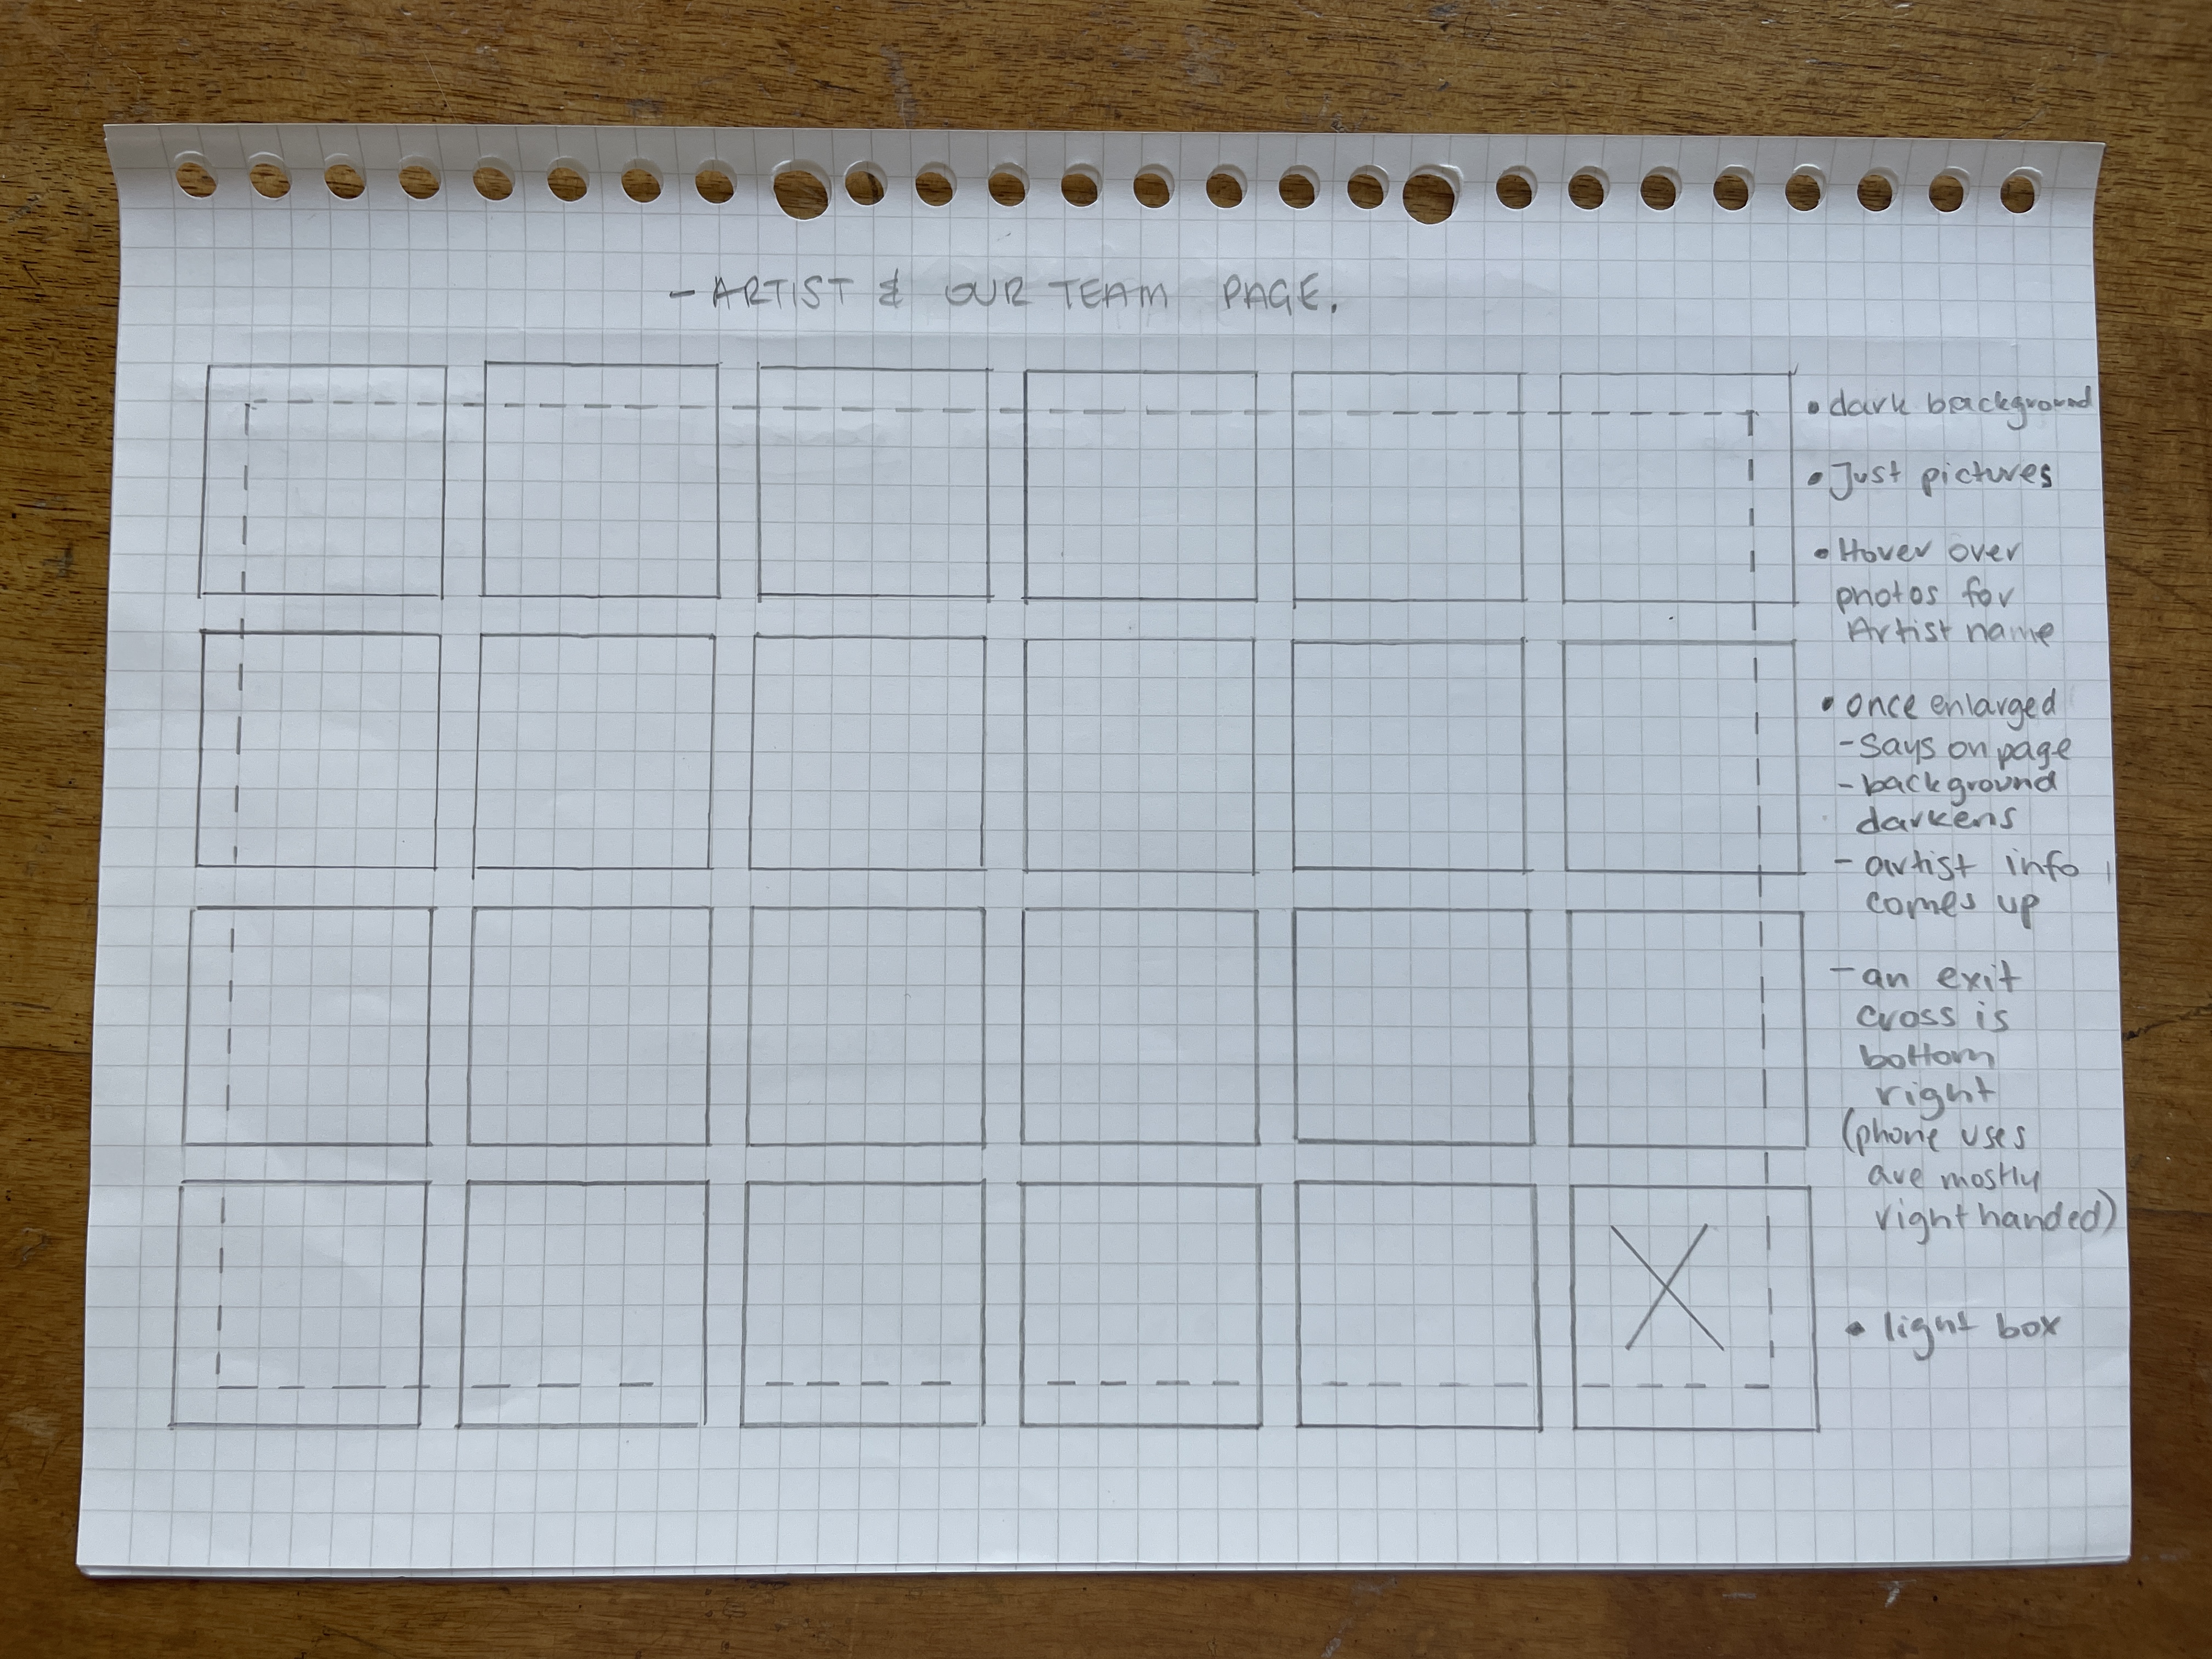 - ARTIST & OUR TEAM PAGE.
• dark background
• Just pictures
• Hover over
photos for
Artist name
• once enlarged
- says on page
- background
darkens
- artist info
comes up
- an exit
cross is
bottom
right
(phone uses
are mostly
right handed)
• light box